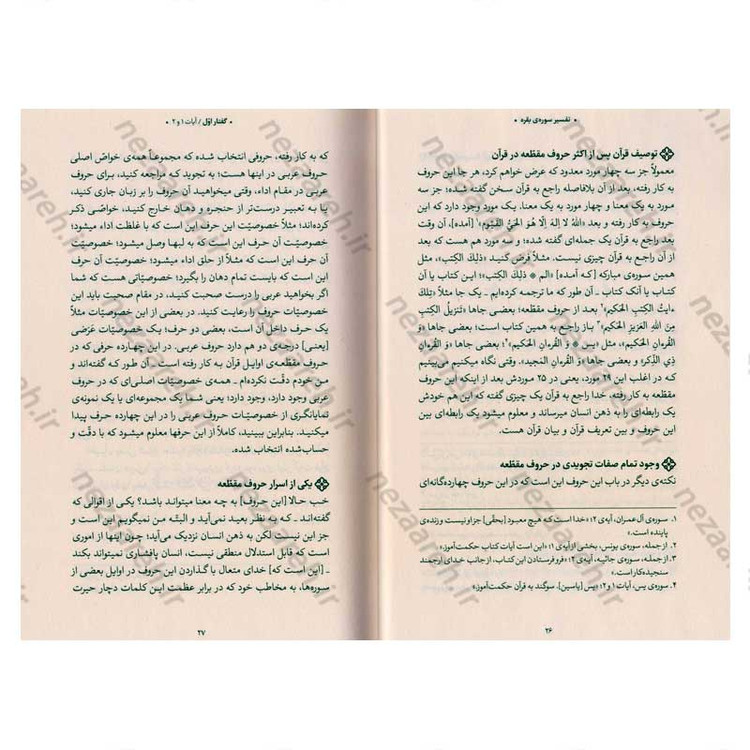 • تفسیر سوره‌ی بقره •
توصیف قرآن پس از اکثر حروف مقطّعه در قرآن
معمولاً جز سه چهار مورد معدود که عرض خواهم کرد، هر جا این حروف
به کار رفته، بعد از آن بلافاصله راجع به قرآن سخن گفته شده؛ جز سه
مورد به یک معنا و چهار مورد به یک معنا. یک مورد وجود دارد که این
حروف به کار رفته و بعد «اللهُ لا اِلهَ اِلّا هُوَ الحَیُّ القَیّوم»۱ [آمده]، آن وقت
بعد راجع به قرآن یک جمله‌ای گفته شده؛ و سه مورد هم هست که بعد
از آن راجع به قرآن چیزی نیست. مثلاً فرض کنید «ذلِکَ الکِتب»، مثل
همین سوره‌ی مبارکه [که آمده] «الم * ذلِکَ الکِتب»؛ این کتاب یا آن
کتاب یا آنک کتاب ـ آن طور که ما ترجمه کرده‌ایم ـ یک جا مثلاً «تِلکَ
ءایتُ الکِتبِ الحَکیم»۲ بعد از حروف مقطّعه؛ بعضی جاها «تَنزیلُ الکِتبِ
مِنَ اللهِ العَزیزِ الحَکیم»۳ باز راجع به همین کتاب است؛ بعضی جاها «وَ القُرءانِ
الحَکیم»، مثل «یس * وَ القُرءانِ الحَکیم»؛۴ بعضی جاها «وَ القُرءانِ
ذِی الذِّکر» و بعضی جاها «وَ القُرءانِ المَجید». وقتی نگاه میکنیم می‌بینیم
که در اغلب این ۲۹ مورد، یعنی در ۲۵ موردش بعد از اینکه این حروف
مقطّعه به کار رفته، خدا راجع به قرآن یک چیزی گفته که این هم خودش
یک رابطه‌ای را به ذهن انسان میرساند و معلوم میشود یک رابطه‌ای بین
این حروف و بین تعریف قرآن و بیان قرآن هست.
وجود تمام صفات تجویدی در حروف مقطّعه
نکته‌ی دیگر در باب این حروف این است که در این حروف چهارده‌گانه‌ای
۱. سوره‌ی آل عمران، آیه‌ی ۲؛ «خدا است که هیچ معبود [بحقّی] جز او نیست و زنده‌ی
پاینده است.»
۲. از جمله، سوره‌ی یونس، بخشی از آیه‌ی ۱؛ «این است آیات کتاب حکمت‌آموز.»
۳. از جمله، سوره‌ی جاثیه، آیه‌ی ۲؛ «فرو فرستادن این کتاب، از جانب خدای ارجمند
سنجیده‌کار است.»
۴. سوره‌ی یس، آیات ۱ و ۲؛ «یس [یاسین]، سوگند به قرآن حکمت‌آموز.»
۲۶
• گفتار اوّل / آیات ۱ و ۲ •
که به کار رفته، حروفی انتخاب شده که مجموعاً همه‌ی خواصّ اصلی
حروف عربی در اینها هست؛ به تجوید که مراجعه کنید، برای حروف
عربی در مقام اداء، وقتی میخواهید آن حروف را بر زبان جاری کنید،
یا به تعبیر درست‌تر از حنجره و دهان خارج کنید، خواصّی ذکر
کرده‌اند؛ مثلاً خصوصیّت این حرف این است که با غلظت اداء میشود؛
خصوصیّت آن حرف این است که به لبها وصل میشود؛ خصوصیّت
آن حرف این است که مثلاً از حلق اداء میشود؛ خصوصیّت آن حرف
این است که بایست تمام دهان را بگیرد؛ خصوصیّاتی هست که شما
اگر بخواهید عربی را درست صحبت کنید، در مقام صحبت باید این
خصوصیّات حروف را رعایت کنید. در بعضی از این خصوصیّات مثلاً
یک حرف داخل آن است، بعضی دو حرف؛ یک خصوصیّات عَرَضی
[یعنی] درجه‌ی دو هم دارد حروف عربی. در این چهارده حرفی که در
حروف مقطّعه‌ی اوایل قرآن به کار رفته است ـ آن طور که گفته‌اند و
من خودم دقّت نکرده‌ام ـ همه‌ی خصوصیّات اصلی‌ای که در حروف
عربی وجود دارد، وجود دارد؛ یعنی شما یک مجموعه‌ای یا یک نمونه‌ی
تمایانگری از خصوصیّات حروف عربی را در این چهارده حرف پیدا
میکنید. بنابراین ببینید، کاملاً از این حرفها معلوم میشود که با دقّت و
حساب‌شده انتخاب شده.
یکی از اسرار حروف مقطّعه
خب حالا [این حروف] به چه معنا میتواند باشد؟ یکی از اقوالی که
گفته‌اند ـ که به نظر بعید نمی‌آید و البتّه من نمیگویم این است و
جز این نیست لکن به ذهن انسان نزدیک می‌آید؛ چون اینها از اموری
است که قابل استدلال منطقی نیست، انسان پافشاری نمیتواند بکند
ـ [این است که] خدای متعال با گذاردن این حروف در اوایل بعضی از
سوره‌ها، به مخاطب خود که در برابر عظمت این کلمات دچار حیرت
۲۷
nezaareh.ir